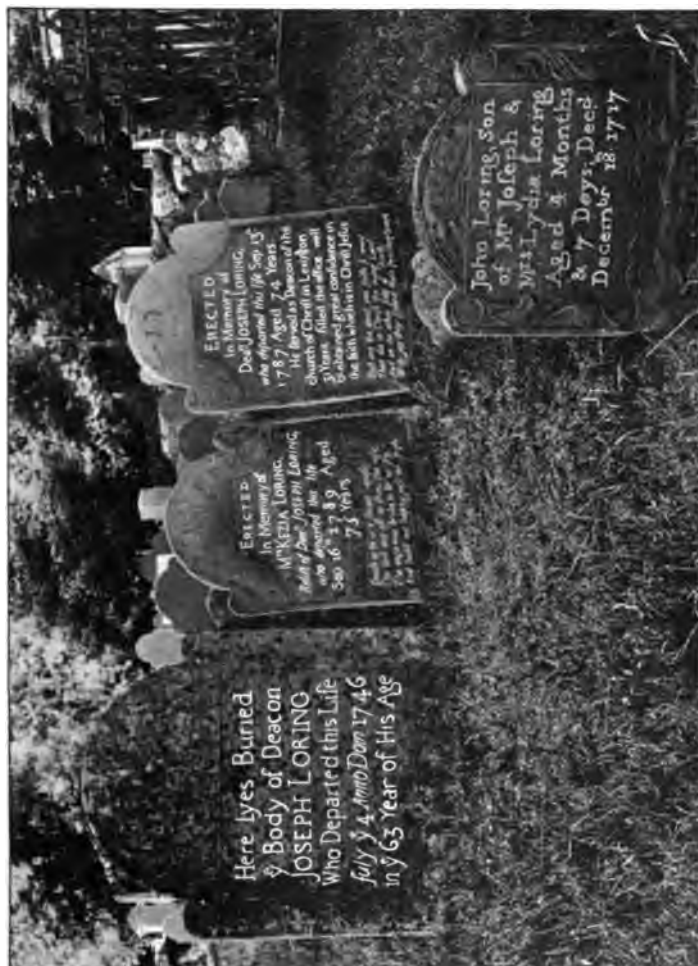 Here Lyes Buried
yͤ Body of Deacon
JOSEPH LORING
Who Departed this Life
July yͤ 4 Anno Dom 1746
in yͤ 63 Year of His Age
ERECTED
In Memory of
Mʳˢ KEZIA LORING,
Relict of Deaⁿ JOSEPH LORING,
who departed this life
Sep 16 1789 Aged
73 Years
ERECTED
In Memory of
Deaⁿ JOSEPH LORING,
who departed this life Sep. 15
1787 Aged 74 Years
He ſerved as Deacon of the
church of Chriſt in Lexinton
31 Years filled the office well
& obtained great confidence in
the faith which is in Chriſt Jeſus
John Loring, Son
of Mʳ Joſeph &
Mʳˢ Lydia Loring
Aged 4 Months
& 7 Days, Decd
Decembr 18 1717